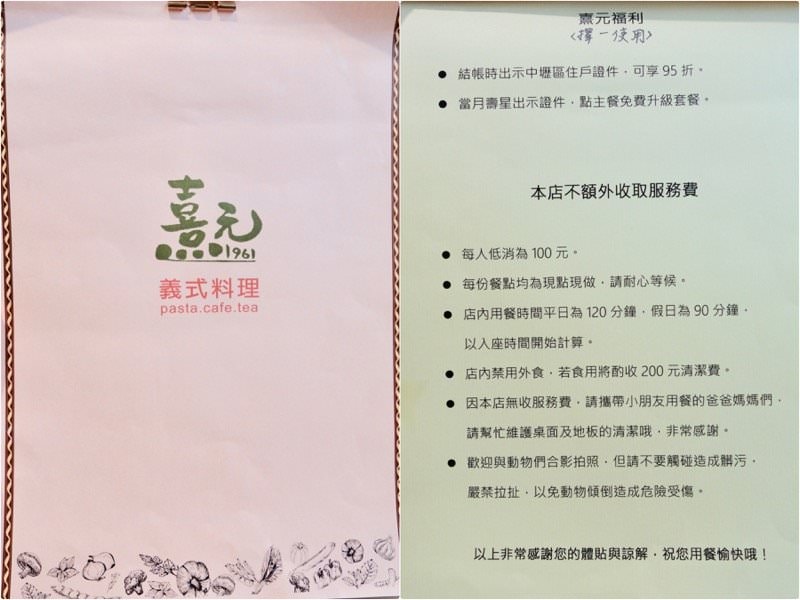 熹元
1961
義式料理
pasta.cafe.tea
熹元福利
<擇一使用>
● 結帳時出示中壢區住戶證件，可享 95 折。
● 當月壽星出示證件，點主餐免費升級套餐。
本店不額外收取服務費
● 每人低消為 100 元。
● 每份餐點均為現點現做，請耐心等候。
● 店內用餐時間平日為 120 分鐘，假日為 90 分鐘，
以入座時間開始計算。
● 店內禁用外食，若食用將酌收 200 元清潔費。
● 因本店無收服務費，請攜帶小朋友用餐的爸爸媽媽們，
請幫忙維護桌面及地板的清潔哦，非常感謝。
● 歡迎與動物們合影拍照，但請不要觸碰造成髒污，
嚴禁拉扯，以免動物傾倒造成危險受傷。
以上非常感謝您的體貼與諒解，祝您用餐愉快哦！